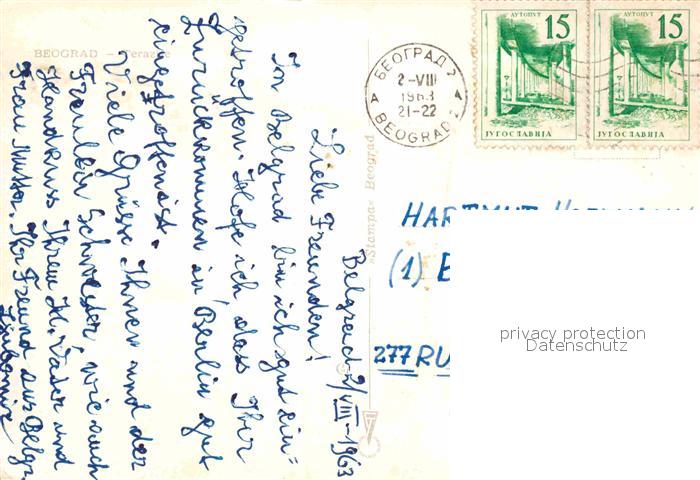 BEOGRAD – Terazije
Belgrad 2/VIII-1963
Liebe Freunden!
In Belgrad bin ich gut ein=
getroffen. Hofe ich das Ihr
Zurückkommen in Berlin gut
eingetroffen ist.
Viele Grüsse Ihnen und der
Fraulein Schröder, wie auch
Handkuss Ihrem H. Vater und
Frau Mutter. Ihr Freund aus Belgr.
Ljubomir
»Stampa« Beograd
БЕОГРАД 2
2-VIII
1963
21-22
BEOGRAD 2
АУТОПУТ 15
ЈУГОСЛАВИЈА
АУТОПУТ 15
ЈУГОСЛАВИЈА
HARTMUT
(1) B
277 RU
privacy protection
Datenschutz